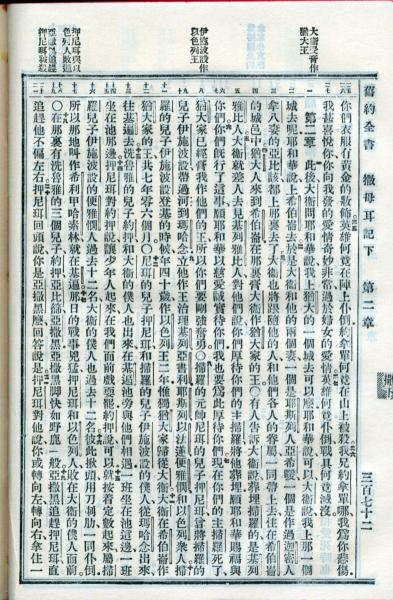 大衛受膏作
猶大王
伊施波設作
以色列王
押尼珥與以
色列人敗逃
亞撒黑追趕
押尼珥被殺
舊約全書 撒母耳記下 第二章 三百七十二
你們衣服有黃金的妝飾英雄何竟在陣上仆倒約拿單何竟在山上被殺我兄約拿單哪我為你悲傷
我甚喜悅你你向我發的愛情奇妙非常過於婦女的愛情英雄何竟仆倒戰具何竟滅沒
第二章 此後大衛問耶和華說我上猶大的一個城去可以麼耶和華說可以大衛說我上那一個
城去呢耶和華說上希伯崙去於是大衛和他的兩個妻一個是耶斯列人亞希暖一個是作過迦密人
拿八妻的亞比該都上那裏去了大衛也將跟隨他的人和他們各人的眷屬一同帶上去住在希伯崙
的城邑中猶大人來到希伯崙在那裏膏大衛作猶大家的王○有人告訴大衛說葬埋掃羅的是基列
雅比人大衛就差人去見基列雅比人對他們說你們厚待你們的主掃羅將他葬埋願耶和華賜福與
你們你們既行了這事願耶和華以慈愛誠實待你們我也要為此厚待你們現在你們的主掃羅死了
猶大家已經膏我作他們的王所以你們要剛強奮勇○掃羅的元帥尼珥的兒子押尼珥曾將掃羅的
兒子伊施波設帶過河到瑪哈念立他作王治理基列亞書利耶斯列以法蓮便雅憫和以色列衆人掃
羅的兒子伊施波設登基的時候年四十歲作以色列王二年惟獨猶大家歸從大衛大衛在希伯崙作
猶大家的王共七年零六個月○尼珥的兒子押尼珥和掃羅的兒子伊施波設的僕人從瑪哈念出來
往基遍去洗魯雅的兒子約押和大衛的僕人也出來在基遍池旁與他們相遇一班坐在池這邊一班
坐在池那邊押尼珥對約押說讓少年人起來在我們面前戲耍罷約押說可以就按着定數起來屬掃
羅兒子伊施波設的便雅憫人過去十二名大衛的僕人也過去十二名彼此揪頭用刀刺肋一同仆倒
所以那地叫作希利甲哈素林就在基遍那日的戰事兇猛押尼珥和以色列人敗在大衛的僕人面前
○在那裏有洗魯雅的三個兒子約押亞比篩亞撒黑亞撒黑腳快如野鹿一般亞撒黑追趕押尼珥直
追趕他不偏左右押尼珥回頭說你是亞撒黑麼回答說是押尼珥對他說你或轉向左轉向右拿住一